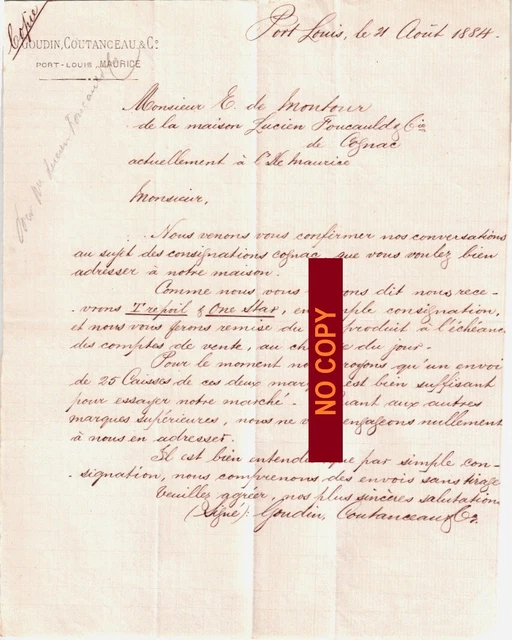 Copie
GOUDIN, COUTANCEAU, & Co.
PORT-LOUIS, MAURICE
Port Louis, le 21 Août 1884.
Monsieur E. de Montour
de la maison Lucien Foucauld & Cie
de Cognac
actuellement à l'Ile Maurice
Monsieur,
Nous venons vous confirmer nos conversations
au sujet des consignations cognac que vous voulez bien
adresser à notre maison.
Comme nous vous ons dit nous rece-
-vrons Trefoil & One Star, en simple consignation,
et nous vous ferons remise du produit à l'échéance
des comptes de vente, au ch du jour.
Pour le moment no royons qu'un envoi
de 25 Caisses de ces deux mar est bien suffisant
pour essayer notre marché - uant aux autres
marques supérieures, nous ne v engageons nullement
à nous en adresser.
Il est bien entendu que par simple con-
-signation, nous comprenons des envois sans tirage
Veuillez agréer, nos plus sincères salutations
(Signé): Goudin, Coutanceau & Co.
NO COPY